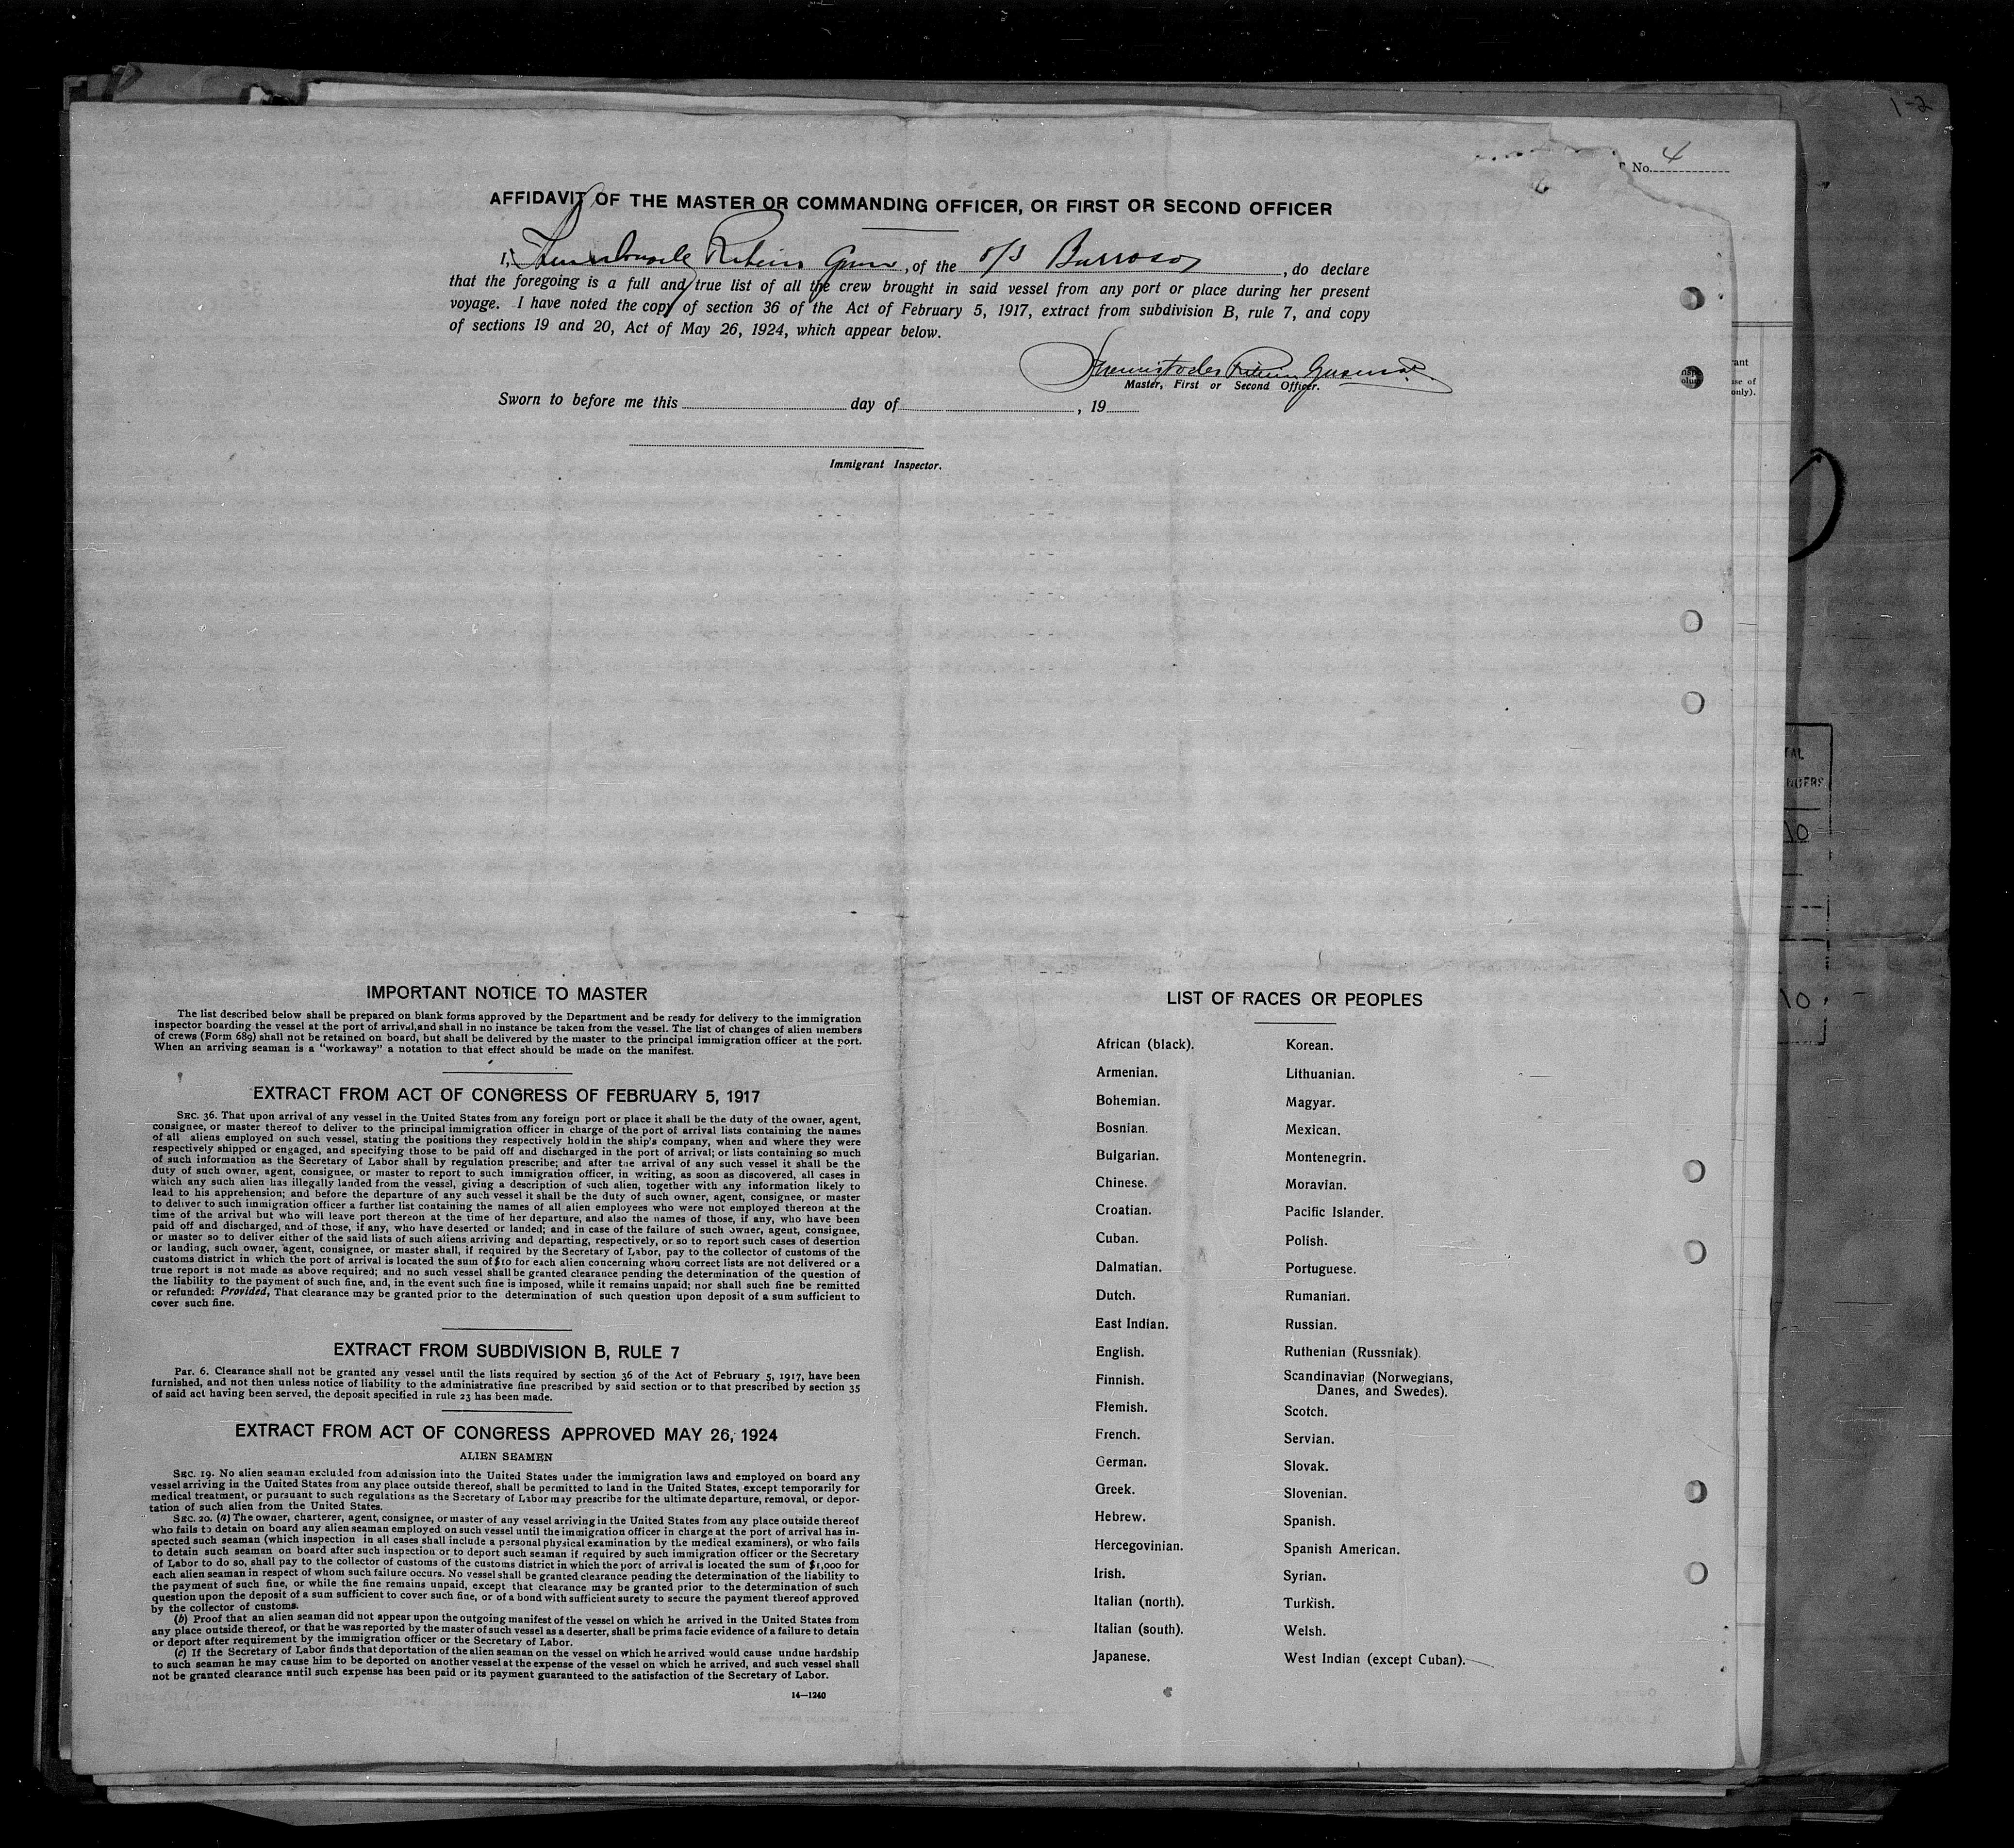 1-2
No. 4
AFFIDAVIT OF THE MASTER OR COMMANDING OFFICER, OR FIRST OR SECOND OFFICER
I, , of the s/s , do declare
that the foregoing is a full and true list of all the crew brought in said vessel from any port or place during her present
voyage. I have noted the copy of section 36 of the Act of February 5, 1917, extract from subdivision B, rule 7, and copy
of sections 19 and 20, Act of May 26, 1924, which appear below.
Master, First or Second Officer.
Sworn to before me this day of , 19
Immigrant Inspector.
IMPORTANT NOTICE TO MASTER
The list described below shall be prepared on blank forms approved by the Department and be ready for delivery to the immigration
inspector boarding the vessel at the port of arrival, and shall in no instance be taken from the vessel. The list of changes of alien members
of crews (Form 689) shall not be retained on board, but shall be delivered by the master to the principal immigration officer at the port.
When an arriving seaman is a "workaway" a notation to that effect should be made on the manifest.
EXTRACT FROM ACT OF CONGRESS OF FEBRUARY 5, 1917
SEC. 36. That upon arrival of any vessel in the United States from any foreign port or place it shall be the duty of the owner, agent,
consignee, or master thereof to deliver to the principal immigration officer in charge of the port of arrival lists containing the names
of all aliens employed on such vessel, stating the positions they respectively hold in the ship's company, when and where they were
respectively shipped or engaged, and specifying those to be paid off and discharged in the port of arrival; or lists containing so much
of such information as the Secretary of Labor shall by regulation prescribe; and after the arrival of any such vessel it shall be the
duty of such owner, agent, consignee, or master to report to such immigration officer, in writing, as soon as discovered, all cases in
which any such alien has illegally landed from the vessel, giving a description of such alien, together with any information likely to
lead to his apprehension; and before the departure of any such vessel it shall be the duty of such owner, agent, consignee, or master
to deliver to such immigration officer a further list containing the names of all alien employees who were not employed thereon at the
time of the arrival but who will leave port thereon at the time of her departure, and also the names of those, if any, who have been
paid off and discharged, and of those, if any, who have deserted or landed; and in case of the failure of such owner, agent, consignee,
or master so to deliver either of the said lists of such aliens arriving and departing, respectively, or so to report such cases of desertion
or landing, such owner, agent, consignee, or master shall, if required by the Secretary of Labor, pay to the collector of customs of the
customs district in which the port of arrival is located the sum of $10 for each alien concerning whom correct lists are not delivered or a
true report is not made as above required; and no such vessel shall be granted clearance pending the determination of the question of
the liability to the payment of such fine, and, in the event such fine is imposed, while it remains unpaid; nor shall such fine be remitted
or refunded: Provided, That clearance may be granted prior to the determination of such question upon deposit of a sum sufficient to
cover such fine.
EXTRACT FROM SUBDIVISION B, RULE 7
Par. 6. Clearance shall not be granted any vessel until the lists required by section 36 of the Act of February 5, 1917, have been
furnished, and not then unless notice of liability to the administrative fine prescribed by said section or to that prescribed by section 35
of said act having been served, the deposit specified in rule 23 has been made.
EXTRACT FROM ACT OF CONGRESS APPROVED MAY 26, 1924
ALIEN SEAMEN
SEC. 19. No alien seaman excluded from admission into the United States under the immigration laws and employed on board any
vessel arriving in the United States from any place outside thereof, shall be permitted to land in the United States, except temporarily for
medical treatment, or pursuant to such regulations as the Secretary of Labor may prescribe for the ultimate departure, removal, or depor-
tation of such alien from the United States.
SEC. 20. (a) The owner, charterer, agent, consignee, or master of any vessel arriving in the United States from any place outside thereof
who fails to detain on board any alien seaman employed on such vessel until the immigration officer in charge at the port of arrival has in-
spected such seaman (which inspection in all cases shall include a personal physical examination by the medical examiners), or who fails
to detain such seaman on board after such inspection or to deport such seaman if required by such immigration officer or the Secretary
of Labor to do so, shall pay to the collector of customs of the customs district in which the port of arrival is located the sum of $1,000 for
each alien seaman in respect of whom such failure occurs. No vessel shall be granted clearance pending the determination of the liability to
the payment of such fine, or while the fine remains unpaid, except that clearance may be granted prior to the determination of such
question upon the deposit of a sum sufficient to cover such fine, or of a bond with sufficient surety to secure the payment thereof approved
by the collector of customs.
(b) Proof that an alien seaman did not appear upon the outgoing manifest of the vessel on which he arrived in the United States from
any place outside thereof, or that he was reported by the master of such vessel as a deserter, shall be prima facie evidence of a failure to detain
or deport after requirement by the immigration officer or the Secretary of Labor.
(c) If the Secretary of Labor finds that deportation of the alien seaman on the vessel on which he arrived would cause undue hardship
to such seaman he may cause him to be deported on another vessel at the expense of the vessel on which he arrived, and such vessel shall
not be granted clearance until such expense has been paid or its payment guaranteed to the satisfaction of the Secretary of Labor.
14—1240
LIST OF RACES OR PEOPLES
African (black).
Armenian.
Bohemian.
Bosnian.
Bulgarian.
Chinese.
Croatian.
Cuban.
Dalmatian.
Dutch.
East Indian.
English.
Finnish.
Flemish.
French.
German.
Greek.
Hebrew.
Hercegovinian.
Irish.
Italian (north).
Italian (south).
Japanese.
Korean.
Lithuanian.
Magyar.
Mexican.
Montenegrin.
Moravian.
Pacific Islander.
Polish.
Portuguese.
Rumanian.
Russian.
Ruthenian (Russniak).
Scandinavian (Norwegians,
Danes, and Swedes).
Scotch.
Servian.
Slovak.
Slovenian.
Spanish.
Spanish American.
Syrian.
Turkish.
Welsh.
West Indian (except Cuban).